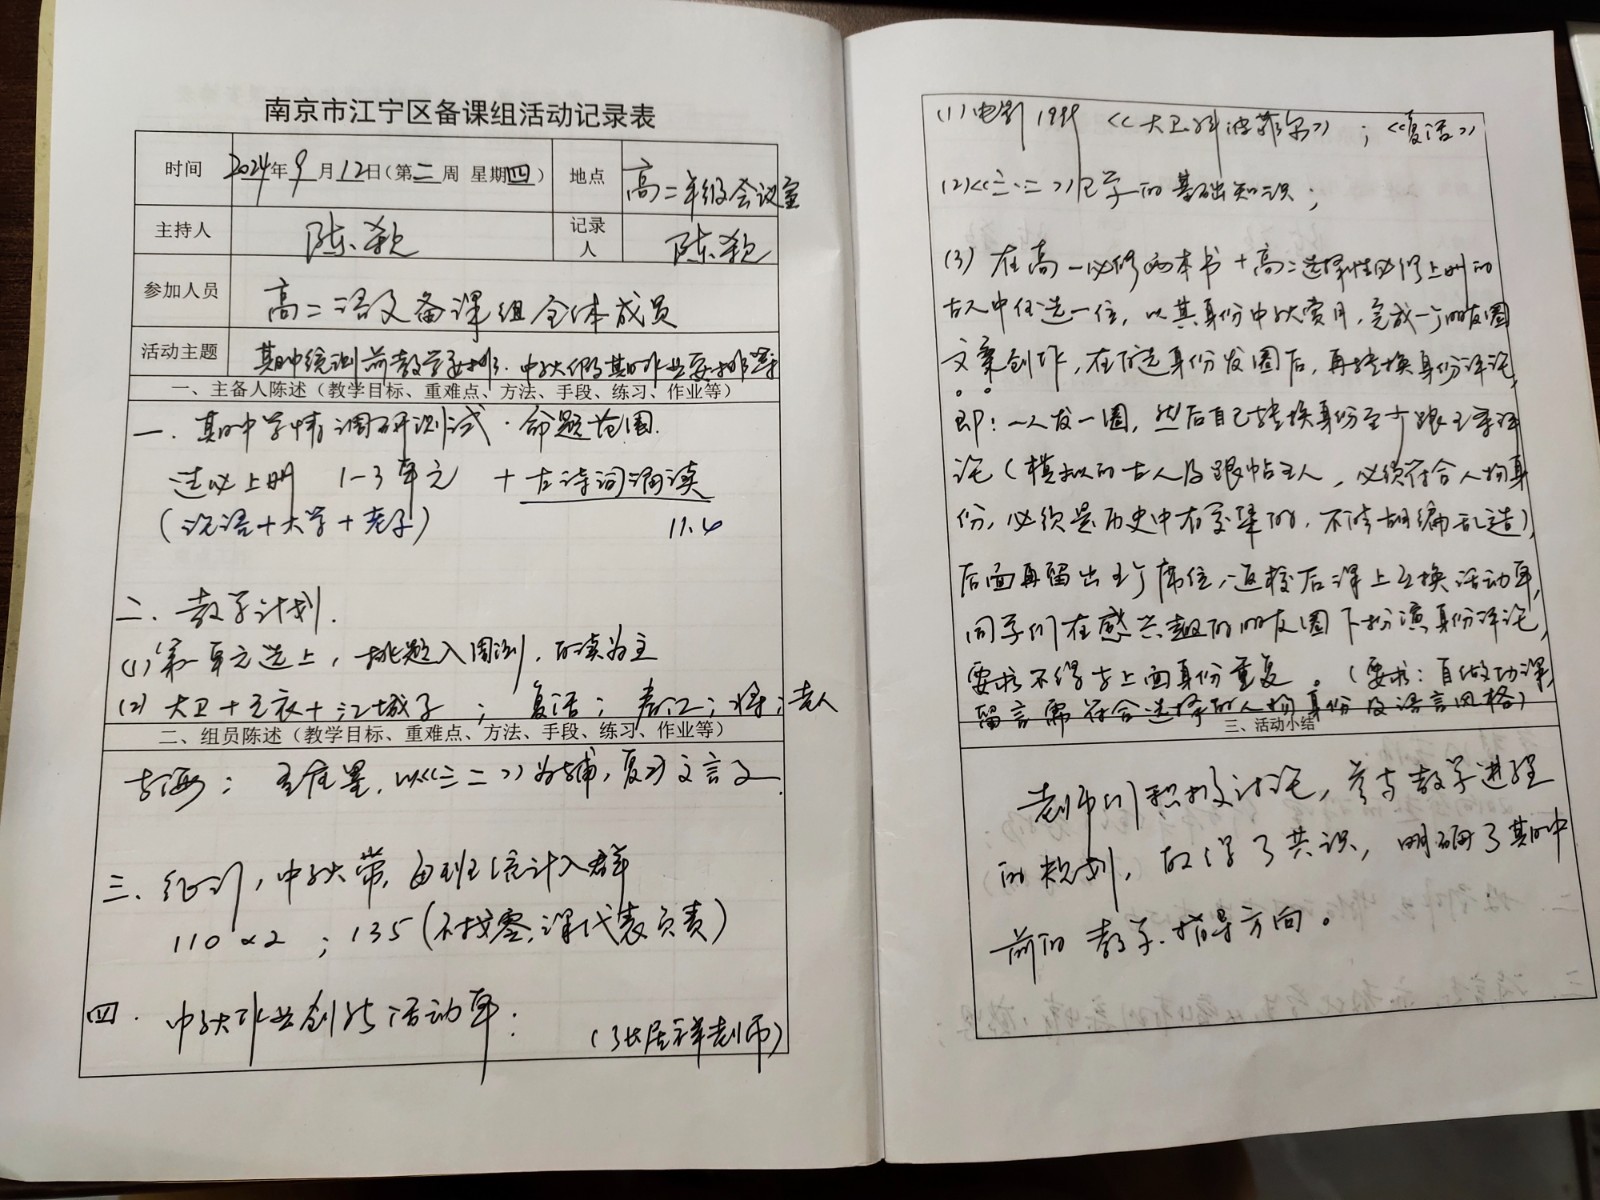 南京市江宁区备课组活动记录表
时间 2024年9月12日(第二周 星期四) 地点 高二年级会议室
主持人 陈 记录人 陈
参加人员 高二语文备课组全体成员
活动主题 期中统测前教学安排、中秋假期作业安排等
一、主备人陈述（教学目标、重难点、方法、手段、练习、作业等）
一、期中学情调研测试、命题范围.
选必上册 1-3单元 +古诗词诵读
(论语+大学+老子) 11.6
二、教学计划.
(1)第一单元选上，挑题入周测，阅读为主
(2) 大卫+无衣+江城子；复活；春江；将；老人
二、组员陈述（教学目标、重难点、方法、手段、练习、作业等）
，以《三二一》为辅，复习文言文.
三、，中秋带，每班统计入群
110×2；135(不找零，课代表负责)
四、中秋作业创新活动单： (张居祥老师)
(1)电影1999《大卫·科波菲尔》；《复活》
(2)《三二一》已学的基础知识；
(3) 在高一必修两本书+高二选择性必修上册的
古人中任选一位，以其身份中秋赏月，完成一个朋友圈
文案创作，在所选身份发圈后，再转换身份评论，
即：一人发一圈，然后自己转换身份至少跟五条评
论(模拟的古人及跟帖主人，必须符合人物身
份，必须是历史中有交集的，不得胡编乱造)，
后面再留出五个席位，返校后课上互换活动单，
同学们在感兴趣的朋友圈下扮演身份评论，
要求不得与上面身份重复。(要求：自做功课，
留言需符合选择的人物身份及语言风格)
三、活动小结
老师们积极讨论，参与教学进程
的规划，取得了共识，明确了期中
前的教学指导方向。